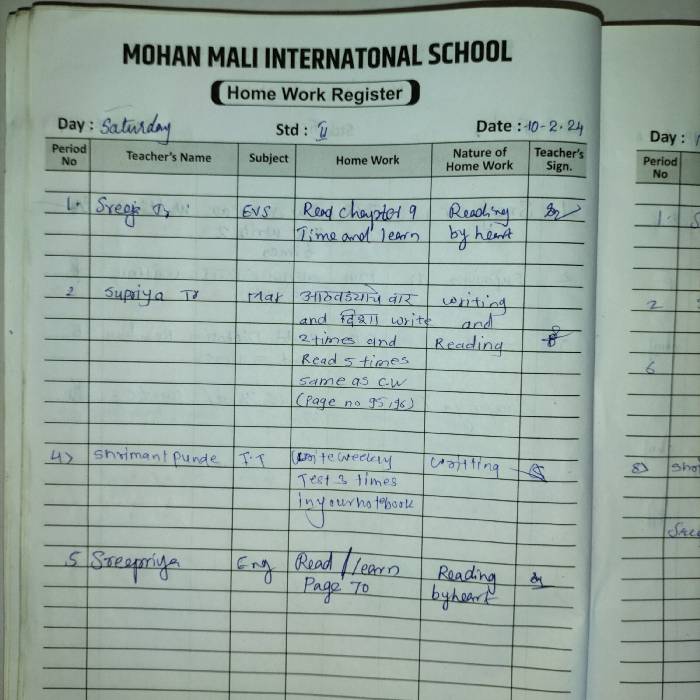 MOHAN MALI INTERNATONAL SCHOOL
Home Work Register
Day : Saturday Std : II Date : 10-2-24
Period No Teacher's Name Subject Home Work Nature of Home Work Teacher's Sign.
1. EVS Read chapter 9 Reading
Time and learn by heart
2 Supriya Tr Mar आठवड्याचे वार writing
and दिशा write and
2 times and Reading
Read 5 times
same as C.W
(Page no 95,96)
4) Shrimant Punde I.T Write weekly writting
Test 3 times
in your notebook
5 Sreepriya Eng Read / learn Reading
Page 70 by heart
Day :
Period No
1.
2
6
8)